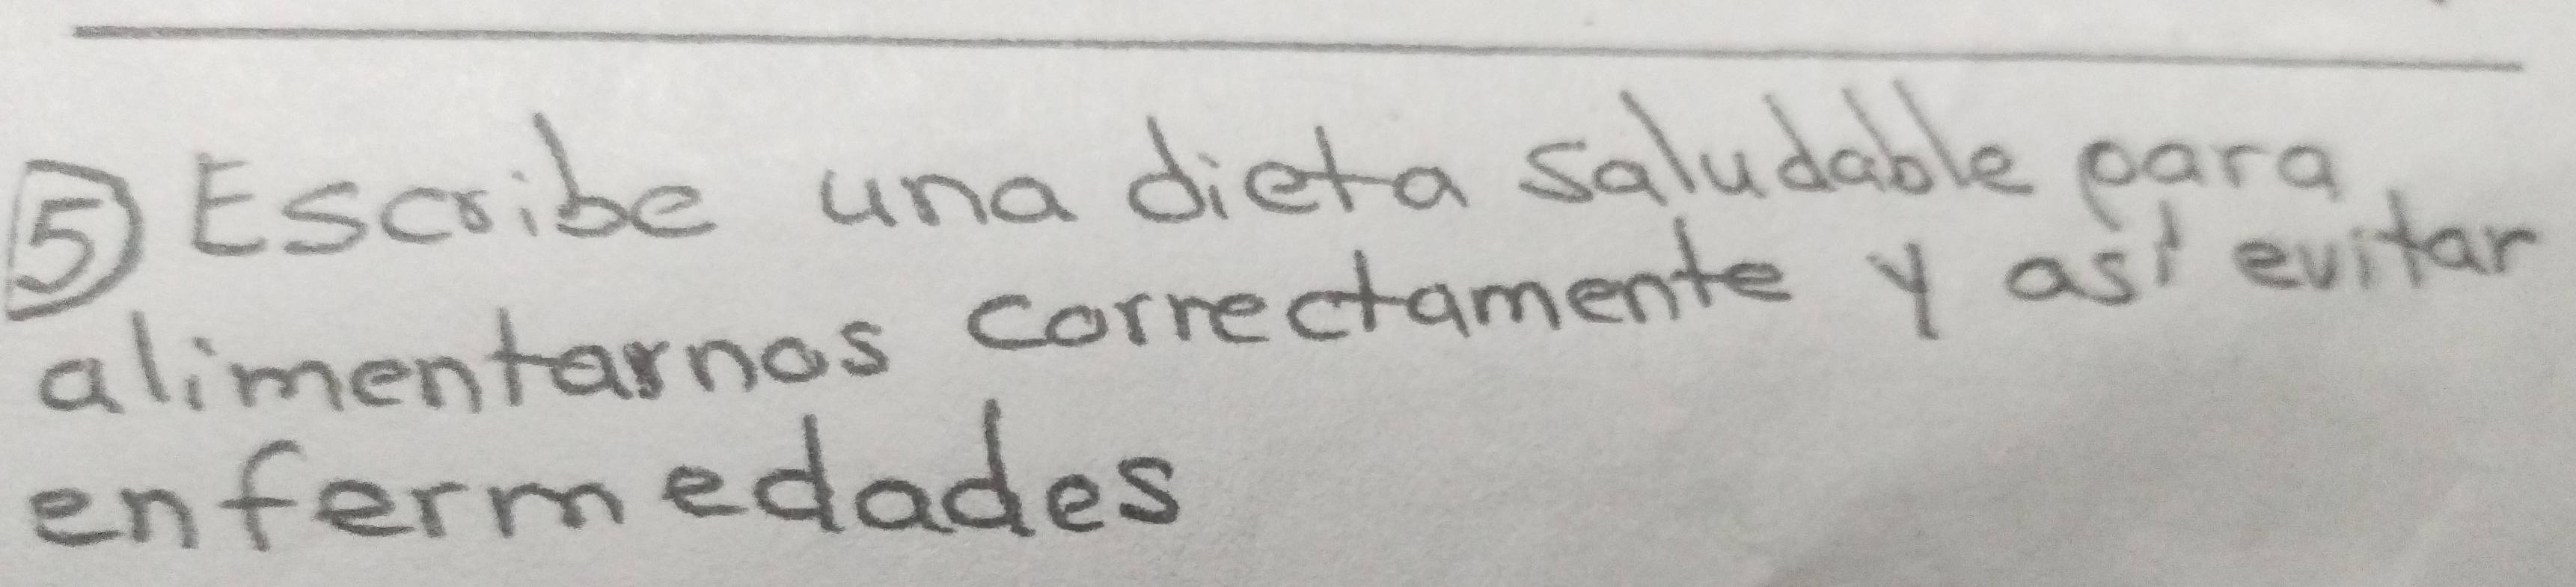 5 Escribe una dieta saludable para
alimentarnos correctamente y así evitar
enfermedades